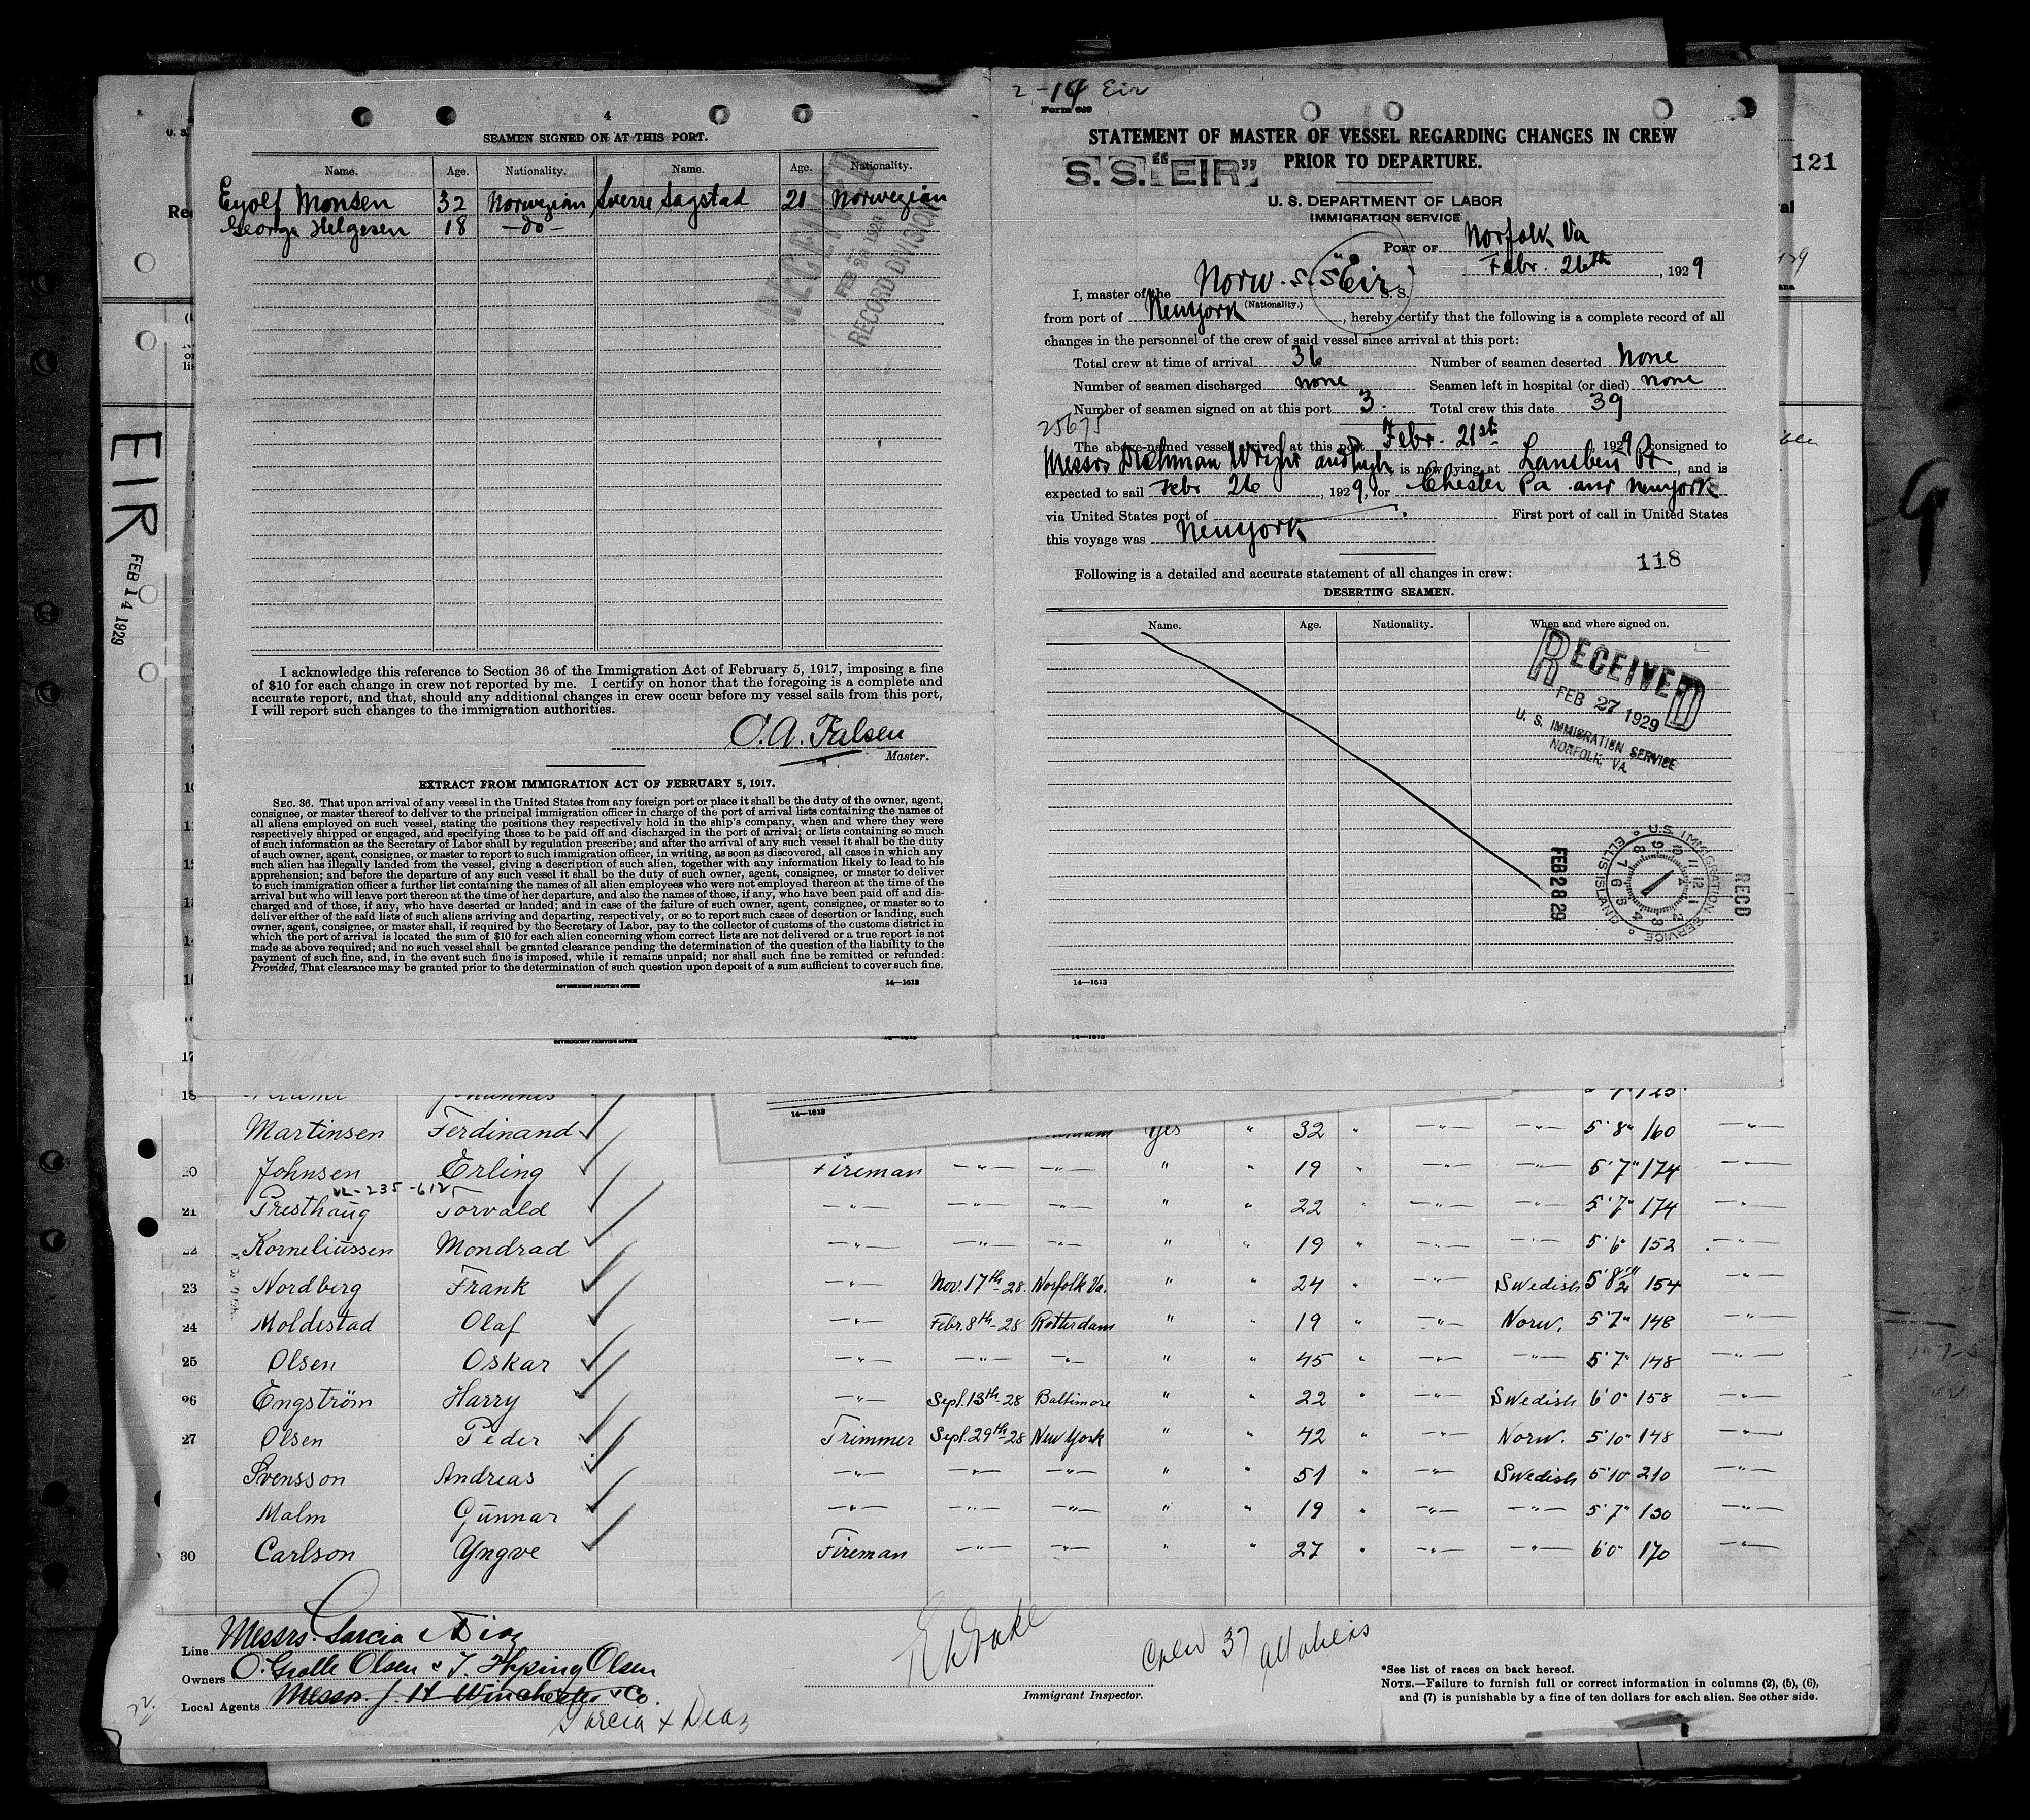 4
SEAMEN SIGNED ON AT THIS PORT.
Name. Age. Nationality. Name. Age. Nationality.
Eyolf Monsen 32 Norwegian Sverre Sagstad 21 Norwegian
George Helgesen 18 —do—
RECEIVED
FEB 28 1929
RECORD DIVISION
I acknowledge this reference to Section 36 of the Immigration Act of February 5, 1917, imposing a fine
of $10 for each change in crew not reported by me. I certify on honor that the foregoing is a complete and
accurate report, and that, should any additional changes in crew occur before my vessel sails from this port,
I will report such changes to the immigration authorities.
O.A. Falsen
Master.
EXTRACT FROM IMMIGRATION ACT OF FEBRUARY 5, 1917.
SEC. 36. That upon arrival of any vessel in the United States from any foreign port or place it shall be the duty of the owner, agent,
consignee, or master thereof to deliver to the principal immigration officer in charge of the port of arrival lists containing the names of
all aliens employed on such vessel, stating the positions they respectively hold in the ship's company, when and where they were
respectively shipped or engaged, and specifying those to be paid off and discharged in the port of arrival; or lists containing so much
of such information as the Secretary of Labor shall by regulation prescribe; and after the arrival of any such vessel it shall be the duty
of such owner, agent, consignee, or master to report to such immigration officer, in writing, as soon as discovered, all cases in which any
such alien has illegally landed from the vessel, giving a description of such alien, together with any information likely to lead to his
apprehension; and before the departure of any such vessel it shall be the duty of such owner, agent, consignee, or master to deliver
to such immigration officer a further list containing the names of all alien employees who were not employed thereon at the time of the
arrival but who will leave port thereon at the time of her departure, and also the names of those, if any, who have been paid off and dis-
charged and of those, if any, who have deserted or landed; and in case of the failure of such owner, agent, consignee, or master so to
deliver either of the said lists of such aliens arriving and departing, respectively, or so to report such cases of desertion or landing, such
owner, agent, consignee, or master shall, if required by the Secretary of Labor, pay to the collector of customs of the customs district in
which the port of arrival is located the sum of $10 for each alien concerning whom correct lists are not delivered or a true report is not
made as above required; and no such vessel shall be granted clearance pending the determination of the question of the liability to the
payment of such fine, and, in the event such fine is imposed, while it remains unpaid; nor shall such fine be remitted or refunded:
Provided, That clearance may be granted prior to the determination of such question upon deposit of a sum sufficient to cover such fine.
GOVERNMENT PRINTING OFFICE 14—1613
2-14 Eir
Form 689
STATEMENT OF MASTER OF VESSEL REGARDING CHANGES IN CREW
PRIOR TO DEPARTURE.
S. S. "EIR"
U. S. DEPARTMENT OF LABOR
IMMIGRATION SERVICE
PORT OF Norfolk Va
Febr. 26th, 1929
I, master of the Norw. S.S. "Eir" S. S.
(Nationality.)
from port of Newyork, hereby certify that the following is a complete record of all
changes in the personnel of the crew of said vessel since arrival at this port:
Total crew at time of arrival 36 Number of seamen deserted None
Number of seamen discharged none Seamen left in hospital (or died) none
Number of seamen signed on at this port 3. Total crew this date 39
25675
The above-named vessel arrived at this port Febr. 21st, 1929, consigned to
Messrs Wright and, is now lying at Pt, and is
expected to sail Febr 26, 1929, for Chester Pa and Newyork
via United States port of . First port of call in United States
this voyage was Newyork
118
Following is a detailed and accurate statement of all changes in crew:
DESERTING SEAMEN.
Name. Age. Nationality. When and where signed on.
RECEIVED
FEB 27 1929
U. S. IMMIGRATION SERVICE
NORFOLK, VA.
FEB 28 29
U.S. IMMIGRATION SERVICE
ELLIS ISLAND
12 1 2 3 4 5 6 7 8 9 10 11
RECD
14—1613
121
EIR
FEB 14 1929
9
GOVERNMENT PRINTING OFFICE
14—1613
18 Johannes 125
Martinsen Ferdinand Yes " 32 " —"— —"— 5'8" 160 —"—
20 Johnsen Erling Fireman —"— —"— " " 19 " —"— —"— 5'7" 174 —"—
VL-235-612
21 Presthaug Torvald —"— —"— —"— " " 22 " —"— —"— 5'7" 174 —"—
22 Korneliussen Mondrad —"— —"— —"— " " 19 " —"— —"— 5'6" 152 —"—
23 Nordberg Frank —"— Nov. 17th-28. Norfolk Va. " " 24 " —"— Swedish 5'8½" 154 —"—
24 Moldestad Olaf —"— Febr. 8th-28 Rotterdam " " 19 " —"— Norw. 5'7" 148 —"—
25 Olsen Oskar —"— —"— —"— " " 45 " —"— —"— 5'7" 148 —"—
26 Engström Harry —"— Sept. 13th-28 Baltimore " " 22 " —"— Swedish 6'0" 158 —"—
27 Olsen Peder Trimmer Sept. 29th-28 New York " " 42 " —"— Norw. 5'10" 148 —"—
Svensson Andreas —"— —"— —"— " " 51 " —"— Swedish 5'10" 210 —"—
Malm Gunnar —"— —"— —"— " " 19 " —"— —"— 5'7" 130 —"—
30 Carlson Yngve Fireman —"— —"— " " 27 " —"— —"— 6'0" 170 —"—
Line Messrs. Garcia & Diaz
Owners O. Grolle Olsen & T. Olsen
Local Agents Messrs. J. H. Winchester & Co.
Garcia & Diaz
Immigrant Inspector.
Crew 37 all aliens
*See list of races on back hereof.
NOTE.—Failure to furnish full or correct information in columns (2), (5), (6),
and (7) is punishable by a fine of ten dollars for each alien. See other side.